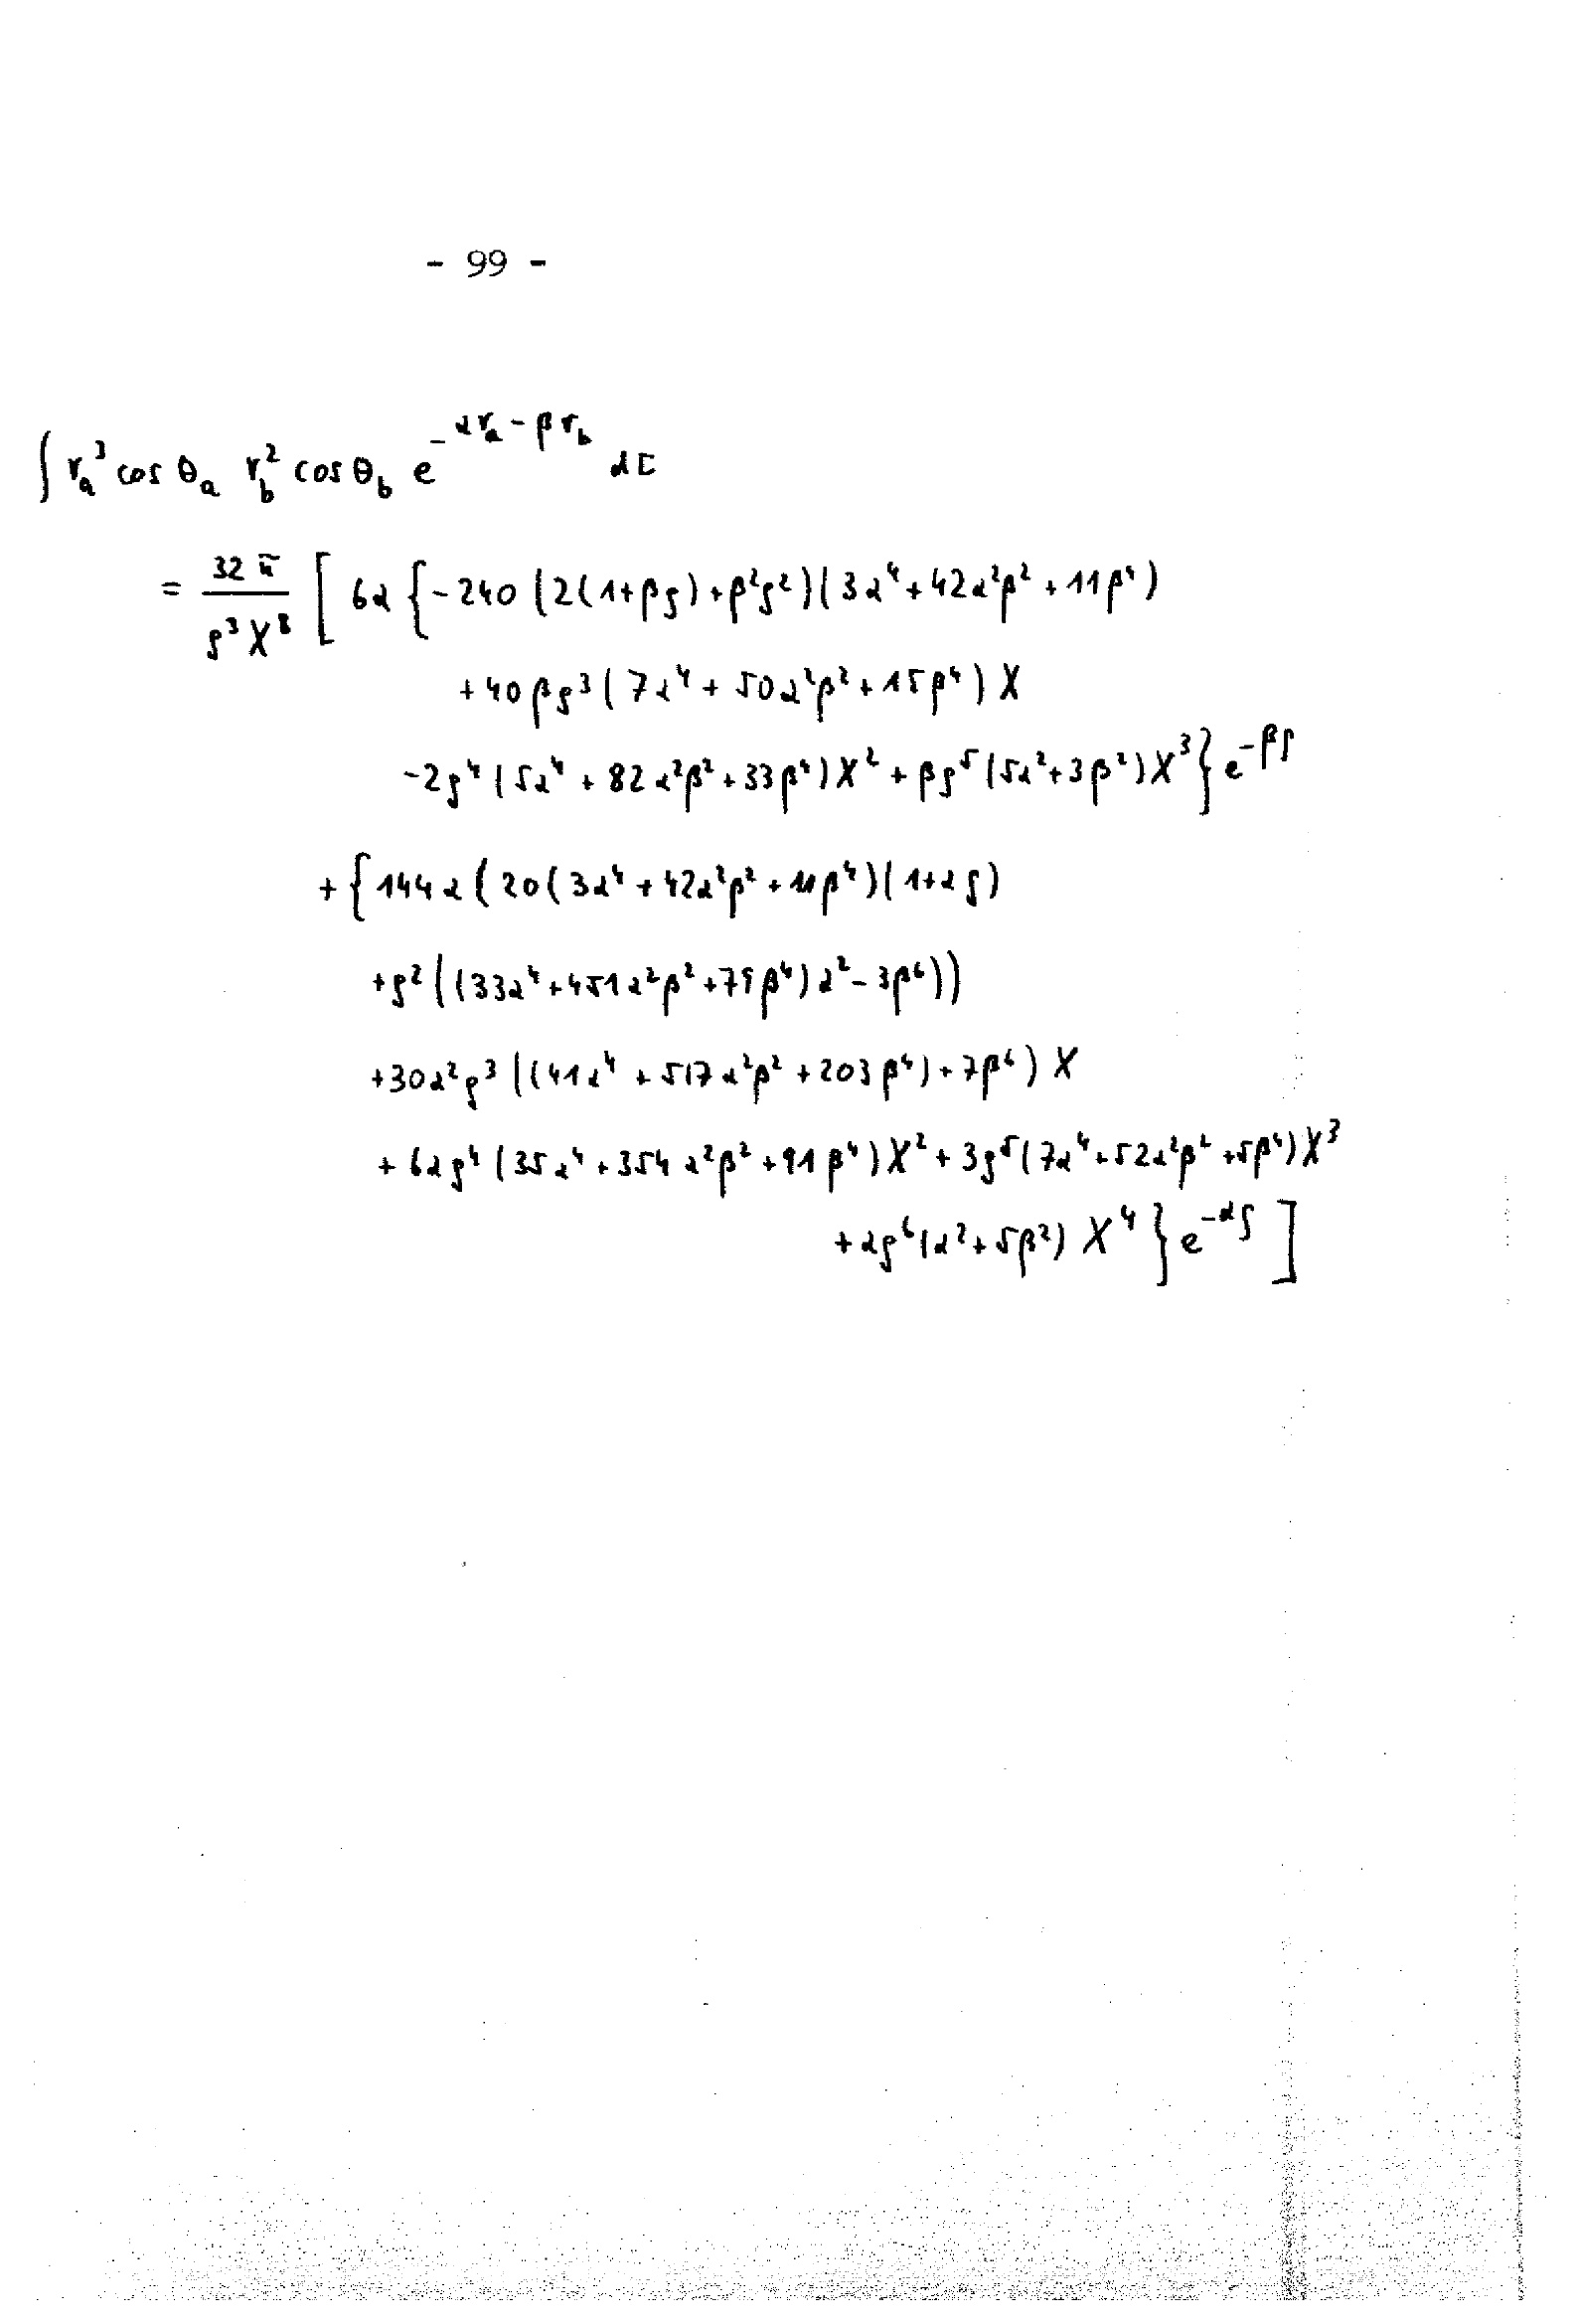 - 99 -
∫ r_a^3 cos θ_a r_b^2 cos θ_b e^{-αr_a - βr_b} dτ
= \frac{32 π}{ρ^3 X^8} [ 6α { -240 (2(1+βρ)+β^2ρ^2)(3α^4+42α^2β^2+11β^4)
+40βρ^3(7α^4+50α^2β^2+15β^4)X
-2ρ^4(5α^4+82α^2β^2+33β^4)X^2+βρ^5(5α^2+3β^2)X^3} e^{-βρ}
+{144α(20(3α^4+42α^2β^2+11β^4)(1+αρ)
+ρ^2((33α^4+451α^2β^2+79β^4)α^2-3β^6))
+30α^2ρ^3((41α^4+517α^2β^2+203β^4)+7β^6)X
+6αρ^4(35α^4+354α^2β^2+91β^4)X^2+3ρ^5(7α^4+52α^2β^2+5β^4)X^3
+αρ^6(α^2+5β^2)X^4} e^{-αρ} ]